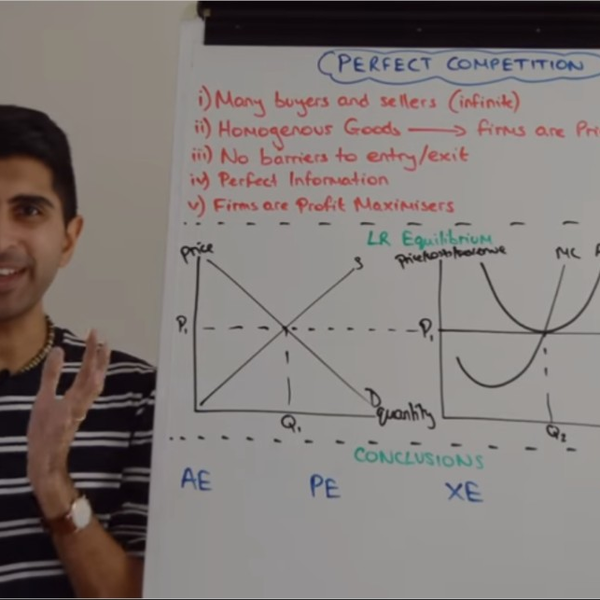 PERFECT COMPETITION
i) Many buyers and sellers (infinite)
ii) Homogenous Goods → firms are Pri
iii) No barriers to entry/exit
iv) Perfect Information
v) Firms are Profit Maximisers
LR Equilibrium
Price
S
P₁
D
quantity
Q₁
Price/costs/revenue
MC
P₁
Q₂
CONCLUSIONS
AE PE XE